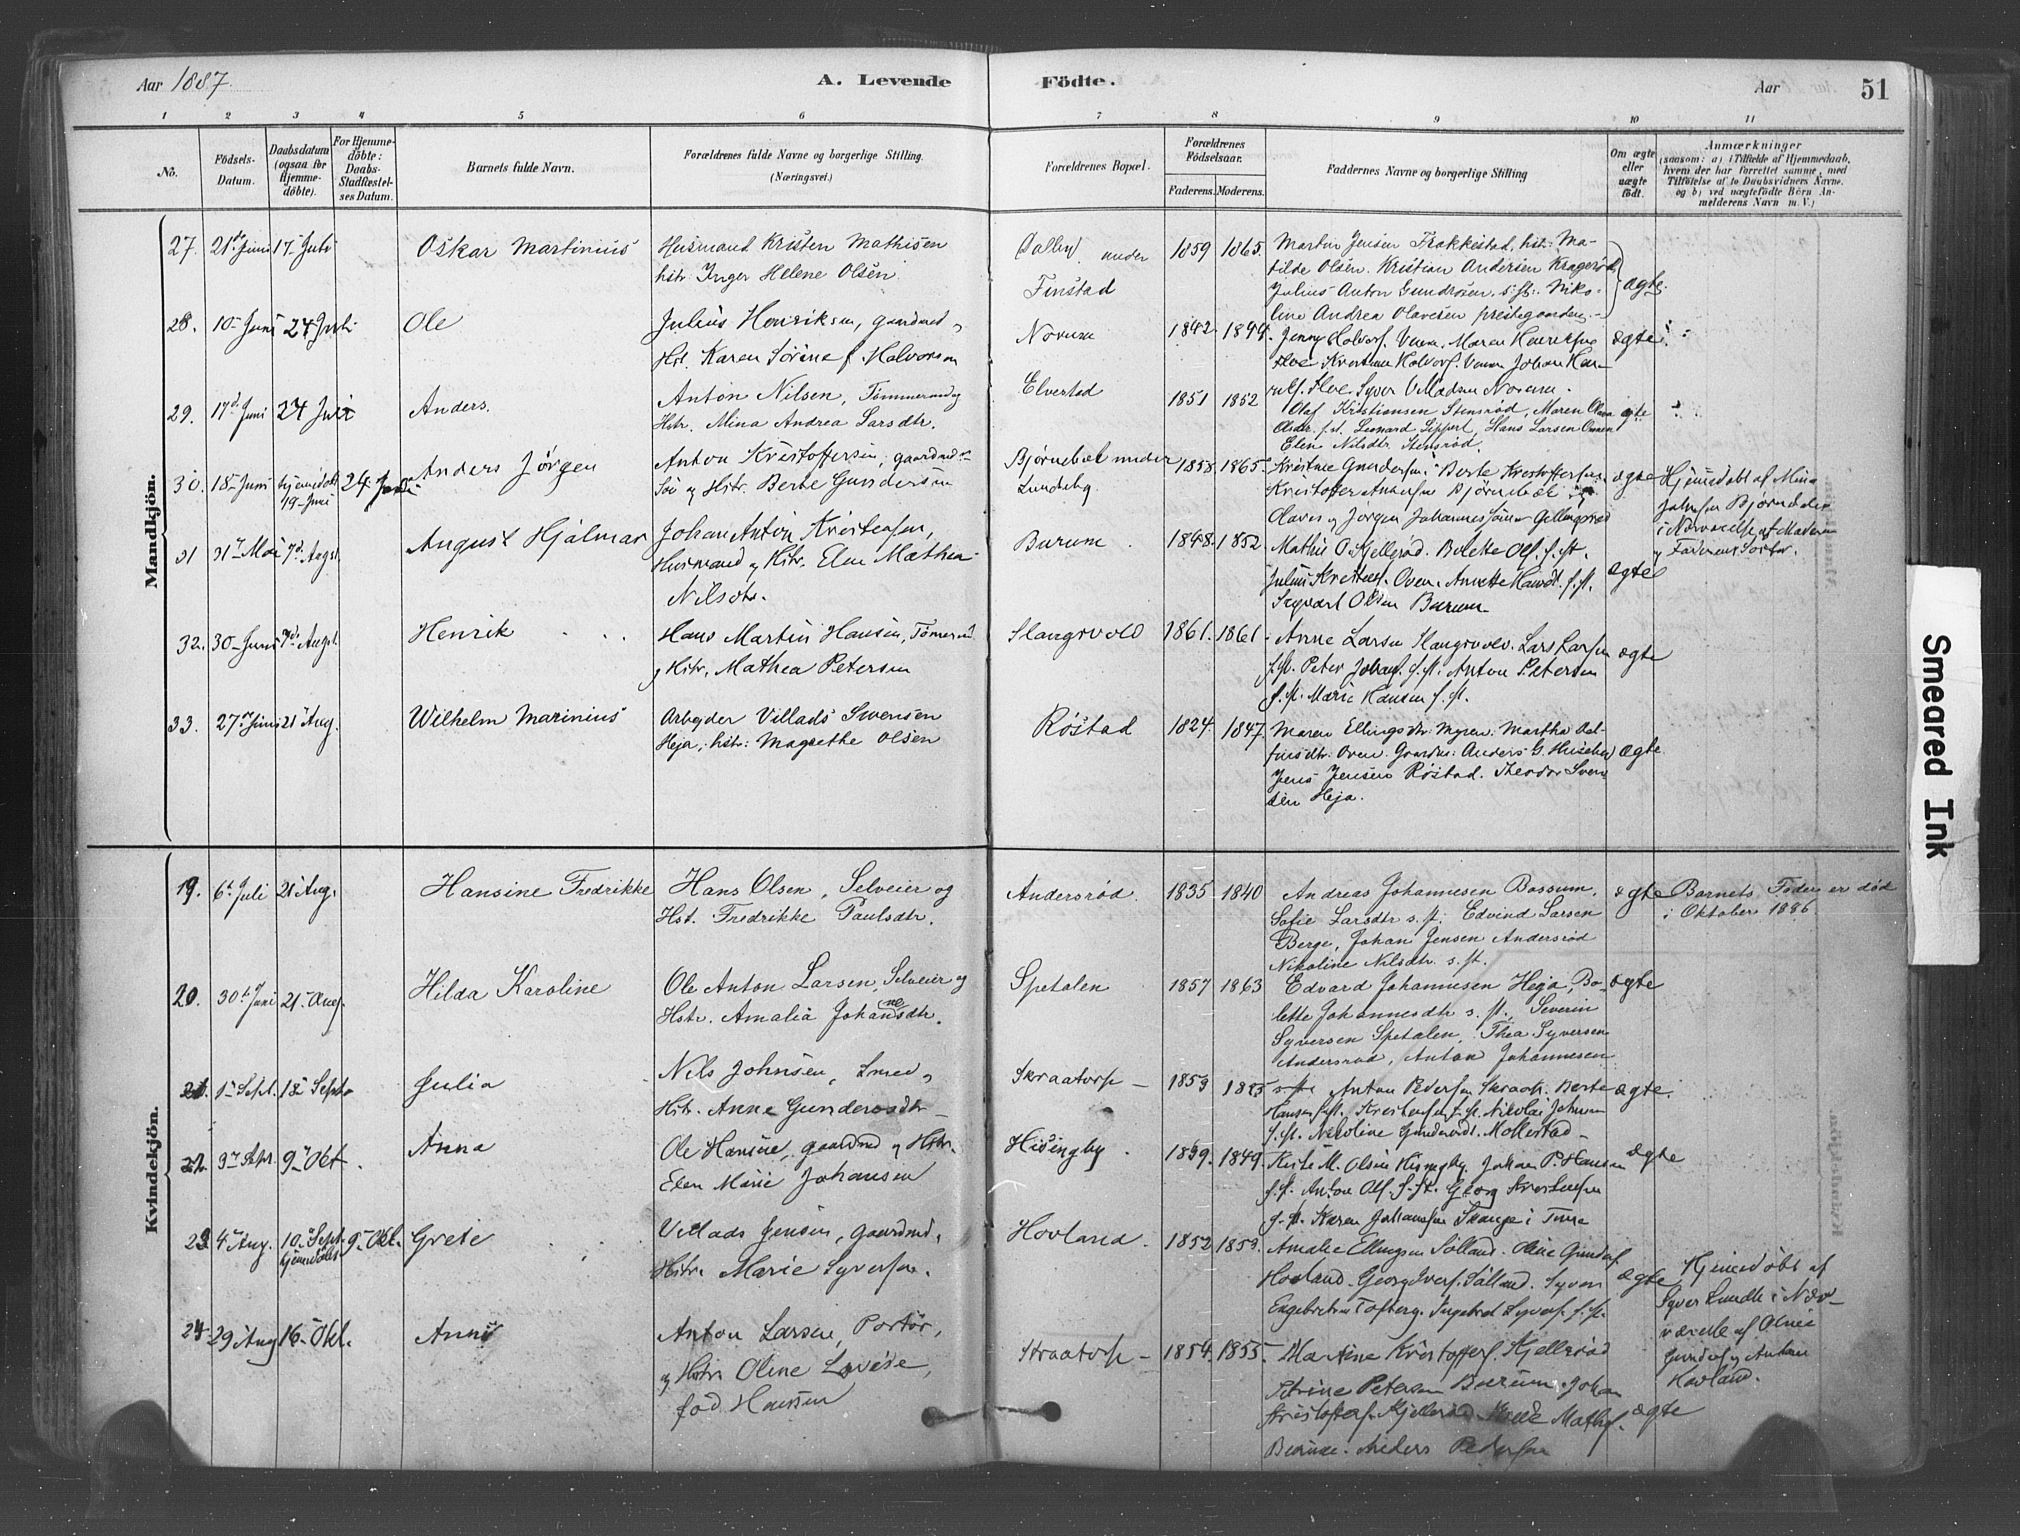 Aar 1887.
A. Levende Födte.
Aar
51
1 2 3 4 5 6 7 8 9 10 11
No.
Födsels-
Datum.
Daabsdatum
(ogsaa for
Hjemme-
döbte).
For Hjemme-
döbte:
Daabs-
Stadfæstel-
ses Datum.
Barnets fulde Navn.
Forældrenes fulde Navne og borgerlige Stilling.
(Næringsvei.)
Forældrenes Bopæl.
Forældrenes
Födselsaar.
Faderens. Moderens.
Faddernes Navne og borgerlige Stilling
Om ægte
eller
uægte
födt.
Anmærkninger
(saasom: a) i Tilfælde af Hjemmedaab,
hvem der har forrettet samme, med
Tilföielse af to Daabsvidners Navne.
og b) ved uægtefödte Börn An-
melderens Navn m. V.)
Mandkjön.
27. 21de Juni 17 Juli Oskar Martinius
Husmand Kristen Mathisen
hstr. Inger Helene Olsen
Dalby under
Finstad
1859 1865.
Martin Jensen Frokkestad, hst: Ma-
tilde Olsen. Kristian Andersen Kragerød
Julius Anton Gundersen. s. st. Niko-
line Andrea Olavesen prestegaarden
ægte.
28. 10 Juni 24 Juli Ole
Julius Henriksen, gaardmd
Hst. Karen Sørine f Halvorsen
Norum
1842. 1844.
ægte
29. 17d Juni 24 Juli Anders.
Anton Nilsen, Tømmermd og
Hstr. Mina Andrea Larsdtr.
Elvestad
1851 1852
Olaf Kristiansen Stensrød, Maren Olava
Olsdr. s. st. Leonard Lippert, Hans Larsen Omen
Elen Nilsdtr Stensrød.
ægte
30. 18 Juni hjemedøbt 19 Juni 24 Juli Anders Jörgen
Anton Kristoffersen, gaardmd
Søn og Hstr. Berte Gundersen
Bjørnebæk under
Lundeby.
1858. 1865.
Kristine Gundersen. Berte Kristoffersen
Kristoffer Andersen Bjørnebæk
Olaves og Jørgen Johannessønner Gillingsrød
ægte
Hjemedøbt af Mina
Johnsen Bjørnebæk
i Nærværelse af Moderen
og Faderens Søster.
31 31 Mai 7d. Augst. August Hjalmar
Johan Anton Kristensen,
Husmand og Hstr. Elen Mathea
Nilsdtr.
Burum.
1848. 1852.
Mathis O. Kjellerød. Bolette Ols. s. st.
Sigvart Olsen Burum
ægte
32. 30 Juni 7d. Augst. Henrik
Hans Martin Hansen, Tømermd
og Hstr. Mathea Petersen
Slangsvold
1861. 1861.
Anne Larsen Slangsvold. Lars Larsen
s. st. Peter Johans. s. st. Anton Petersen
s. st. Marie Hansen s. st.
ægte
33. 27 Juni 21 Aug. Wilhelm Marinius
Arbeider Villads Svensen
Heja, hstr: Magrethe Olsen
Röstad
1824. 1847.
Maren Ellingsdtr. Myren. Martha Ed-
finsdtr. Oven. Gaardm: Anders G. Huseby
Jens Jensen Röstad. Theodor Sven-
sen Heja.
ægte
Kvindekjön.
19. 6t Juli 21 Aug. Hansine Fredrikke
Hans Olsen, Selveier og
Hst. Fredrikke Paulsdtr.
Andersrød.
1835 1840
Andreas Johannesen Bossum,
Sofie Larsdtr s. st. Edvind Larsen
Berge, Johan Jensen Andersrød
Nikoline Nilsdtr. s. st.
ægte
Barnets Fader er død
i Oktober 1886
20. 30te Juni 21 Aug. Hilda Karoline
Ole Anton Larsen, Selveier og
Hstr. Amalia Johannesdtr.
Spetalen
1857 1863
Edvard Johannesen Heja, Bo-
lette Johannesdtr s. st., Severin
Syversen Spetalen, Thea Syversen
Andersrød, Anton Johannesen
ægte
21. 1 Sept. 18 Septr Julia
Nils Johnsen, Smed og
Hstr. Anne Gundersdtr
Skraatorp
1853 1855
s. st. Anton Pedersen Skraat. Berte
Hansen s. st. Kristensen s. st. Nikolai Johnsen
s. st. Nicoline Gundersdt. Mollestad
ægte.
22. 3 Sept. 9 Okt. Anna
Ole Hansen, gaardmd og Hstr.
Elen Marie Johansen
Hisingby.
1839. 1849.
s. st. Anton Ols. s. st. Georg Kristensen
s. st. Karen Johansen Skauge i Tune
ægte
23 4 Aug. 10 Sept. hjemedøbt 9 Okt. Grete
Villads Jensen, gaardmd,
Hstr. Marie Syversen.
Hovland.
1852 1859.
Amalie Ellingsen Sølland. Oline Gunders.
Hovland. Georg Ivers. Sølland. Syver
Engebretsen Tofberg. Ingebret Syvers. s. st.
ægte
Hjemedøbt af
Syver Lunde i Nær-
værelse af Oline
Gunders. og Anton
Hovland.
24 29 Aug 16 Okt. Anna
Anton Larsen, Portør,
og Hstr. Oline Lovise,
fød Hansen
Skraatorp
1854. 1855.
Martine Kristoffers. Kjellerød
Petrine Petersen Burum. Johan
Kristoffers. Kjellerød
Burum. Anders Pedersen
ægte
Smeared Ink